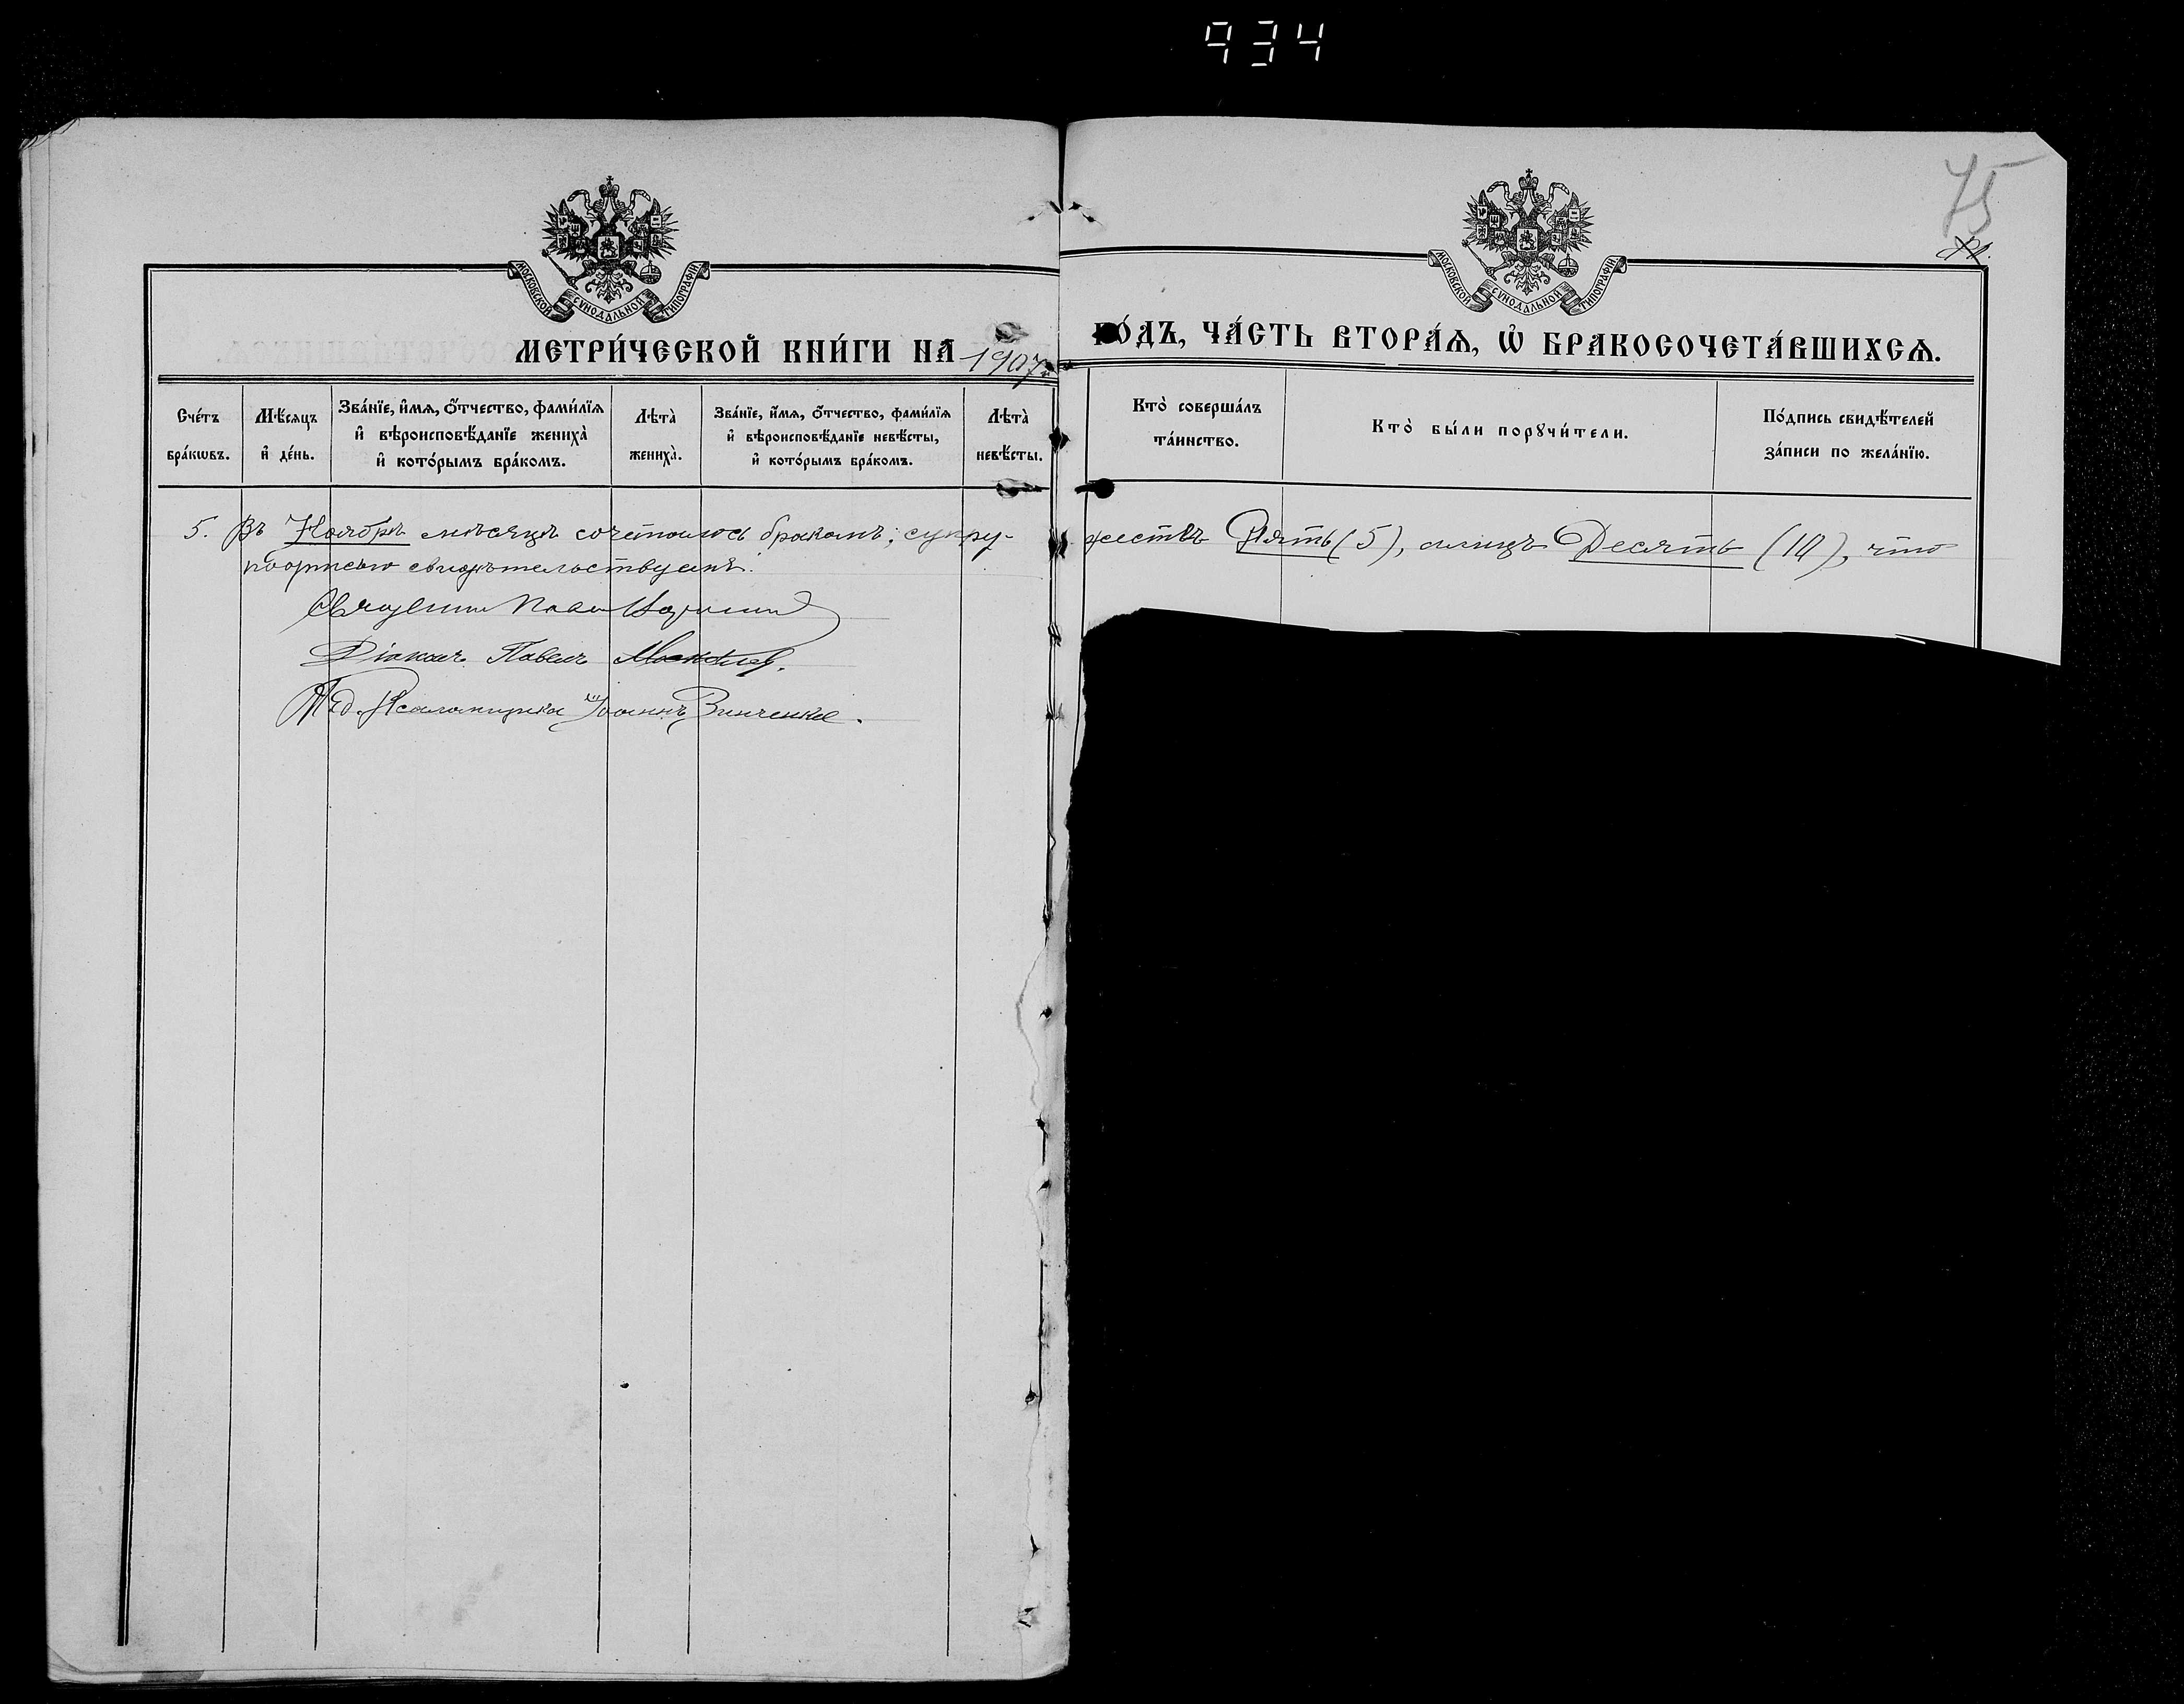 934
75
МОСКОВСКОЙ СѴНОДАЛЬНОЙ ТИПОГРАФІИ
МОСКОВСКОЙ СѴНОДАЛЬНОЙ ТИПОГРАФІИ
МЕТРИ́ЧЕСКОЙ КНИ́ГИ НА 1907 ГО́ДЪ, ЧА́СТЬ ВТОРА́Ѧ, Ѽ БРАКОСОЧЕТА́ВШИХСѦ.
Сче́тъ бра́кωвъ.
Мѣ́сяцъ и҆ де́нь.
Зва́нїе, и҆́мѧ, ѻ҆́тчество, фами́лїѧ и҆ вѣроисповѣ́данїе жениха̀ и҆ кото́рымъ бра́комъ.
Лѣта̀ жениха̀.
Зва́нїе, и҆́мѧ, ѻ҆́тчество, фами́лїѧ и҆ вѣроисповѣ́данїе невѣ́сты, и҆ кото́рымъ бра́комъ.
Лѣта̀ невѣ́сты.
Кто̀ соверша́лъ та́инство.
Кто̀ бы́ли порꙋчи́тели.
По́дпись свидѣ́телей за́писи по жела́нїю.
5. Въ Ноябрѣ мѣсяцѣ сочеталось бракомъ; супру-жествъ Пять (5), а лицъ Десять (10), что
подписью свидѣтельствуемъ.
Священникъ
Діаконъ Павелъ
И. д. Псаломщика Іоаннъ Зинченко.